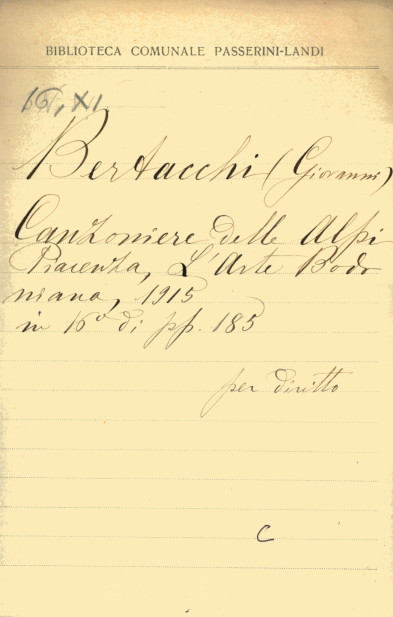 BIBLIOTECA COMUNALE PASSERINI-LANDI
16, XI
Bertacchi (Giovanni)
Canzoniere delle Alpi
Piacenza, L'Arte Bodo
niana, 1915
in 16° di pp. 185
per diritto
C